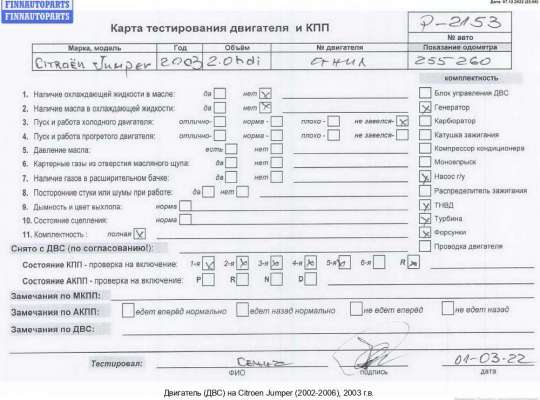 FINNAUTOPARTS
FINNAUTOPARTS
Дата: 07.12.2022
Карта тестирования двигателя и КПП
P-2153
№ авто
Марка, модель Год Объём № двигателя Показание одометра
Citroën Jumper 2003 2.0hdi 255260
комплектность
1. Наличие охлаждающей жидкости в масле: да нет
2. Наличие масла в охлаждающей жидкости: да нет
3. Пуск и работа холодного двигателя: отлично- норма - плохо - не завелся-
4. Пуск и работа прогретого двигателя: отлично- норма - плохо - не завелся-
5. Давление масла: есть нет
6. Картерные газы из отверстия масляного щупа: да нет
7. Наличие газов в расширительном бачке: да нет
8. Посторонние стуки или шумы при работе: да нет
9. Дымность и цвет выхлопа: норма
10. Состояние сцепления: норма
11. Комплектность : полная
Блок управления ДВС
Генератор
Карбюратор
Катушка зажигания
Компрессор кондиционера
Моновпрыск
Насос г/у
Распределитель зажигания
ТНВД
Турбина
Форсунки
Проводка двигателя
Снято с ДВС (по согласованию!):
Состояние КПП - проверка на включение: 1-я 2-я 3-я 4-я 5-я 6-я R
Состояние АКПП - проверка на включение: P R N D
Замечания по МКПП:
Замечания по АКПП: едет вперёд нормально едет назад нормально не едет вперёд не едет назад
Замечания по ДВС:
Тестировал: 01-03-22
ФИО подпись дата
Двигатель (ДВС) на Citroen Jumper (2002-2006), 2003 г.в.